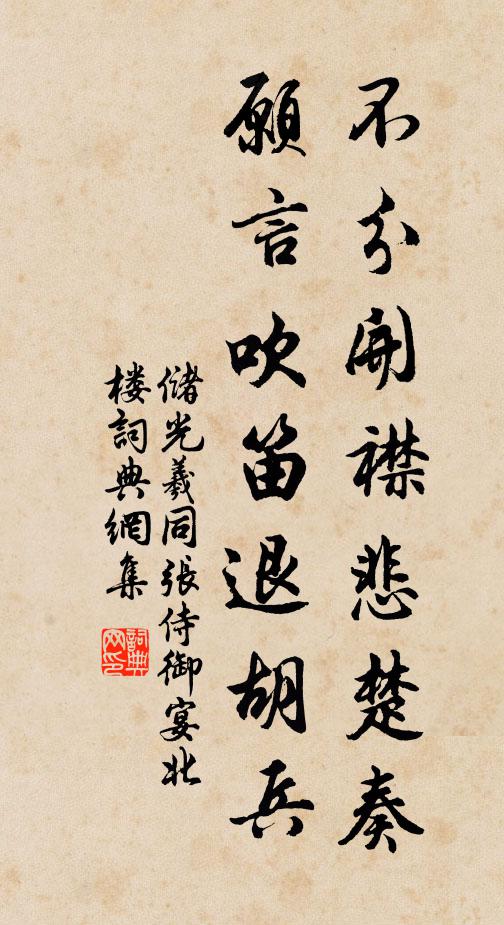 不分開襟悲楚奏
願言吹笛退胡兵
儲光羲同張侍御宴北
楼詞典網集
詞典
网印